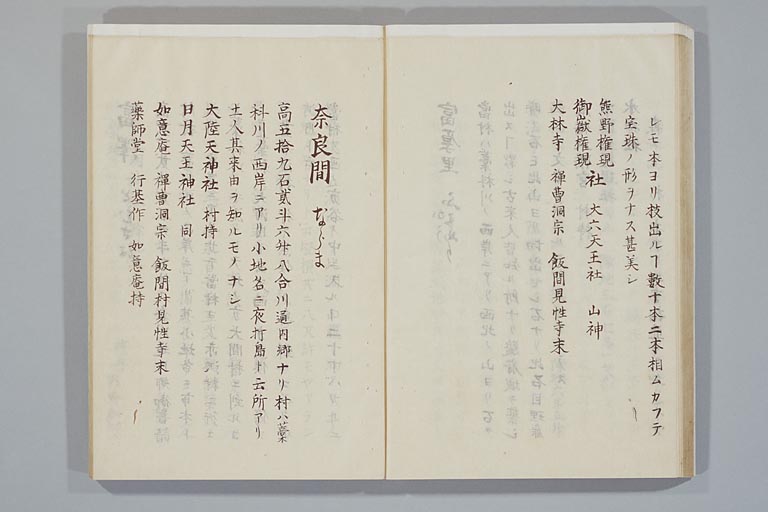 レモ本ヨリ技出ルヿ數十本ニ本相ムカフテ
宝珠ノ形ヲナス甚美シ
熊野権現
御嶽権現 社 大六天王社 山神
大林寺 禪曹洞宗 飯間見性寺末
奈良間 ならま
高五拾九石貳斗六升八合川邊内郷ナリ村ハ藁
科川ノ西岸ニアリ小地名ニ夜打島ト云所アリ
土人其来由ヲ知ルモノナシ
大陸天神社 村持
日月天王神社 同
如意庵 禪曹洞宗 飯間村見性寺末
藥師堂 行基作 如意庵持